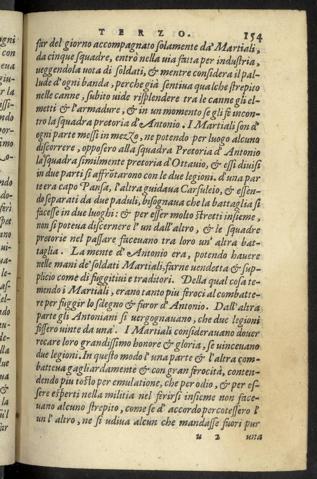 TERZO. 154
fur del giorno accompagnato solamente da' Martiali,
da cinque squadre, entrò nella via fatta per industria,
ueggendola uota di soldati, & mentre considera il pal-
lude d'ogni banda, perche già sentiua qualche strepito
nelle canne, subito uide risplendere tra le canne gli el-
metti & l'armadure, & in un momento se gli fe incon-
tro la squadra pretoria d'Antonio. I Martiali son d'
ogni parte messi in mezo, ne potendo per luogo alcuno
discorrere, opposero alla squadra Pretoria d'Antonio
la squadra similmente pretoria d'Ottauio, & essi diuisi
in due parti si affrotarono con le due legioni, d'una par
te era capo Pansa, l'altra guidaua Carsuleio, & essen-
do separati da due paduli, bisognaua che la battaglia si
facesse in duo luoghi: & per esser molto stretti insieme,
non si poteua discernere l'un dall'altro, & le squadre
pretorie nel passare faceuano tra loro un' altra bat-
taglia. La mente d'Antonio era, potendo hauere
nelle mani de' soldati Martiali, farne uendetta & sup-
plicio come di fuggitiui e traditori. Della qual cosa te-
mendo i Martiali, erano tanto piu feroci al combatte-
re per fuggir lo sdegno & furor d'Antonio. Dall'altra
parte gli Antoniani si uergognauano, che due legioni
fussero uinte da una. I Martiali considerauano douer
recare loro grandissimo honore & gloria, se uinceuano
due legioni. In questo modo l'una parte & l'altra com-
batteua gagliardamente & con gran ferocità, conten-
dendo piu tosto per emulatione, che per odio, & per es-
sere esperti nella militia nel ferirsi insieme non face-
uano alcuno strepito, come se d'accordo percotessero l'
un l'altro, ne si udiua alcun che mandasse fuori pur
u 2 una